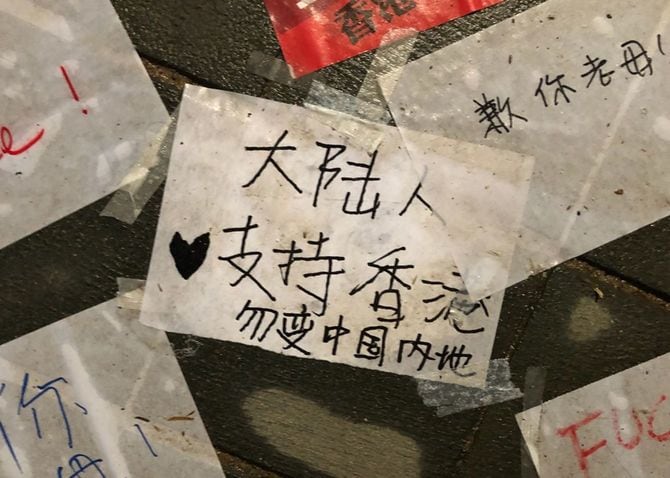 香港
e!
歉你老母!
大陆人
♥支持香港
勿变中国内地
你
FUC